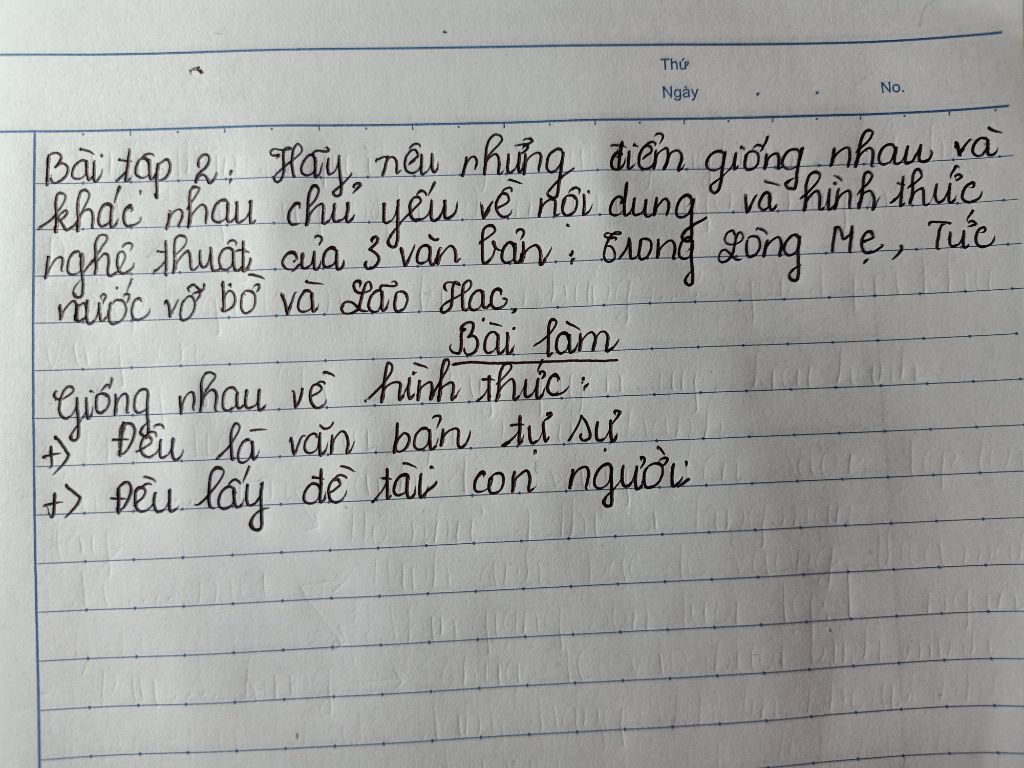 Thứ
Ngày . . No.
Bài tập 2: Hãy nêu những điểm giống nhau và
khác nhau chủ yếu về nội dung và hình thức
nghệ thuật của 3 văn bản: Trong Lòng Mẹ, Tức
nước vỡ bờ và Lão Hạc.
Bài làm
Giống nhau về hình thức:
+> Đều là văn bản tự sự
+> Đều lấy đề tài con người